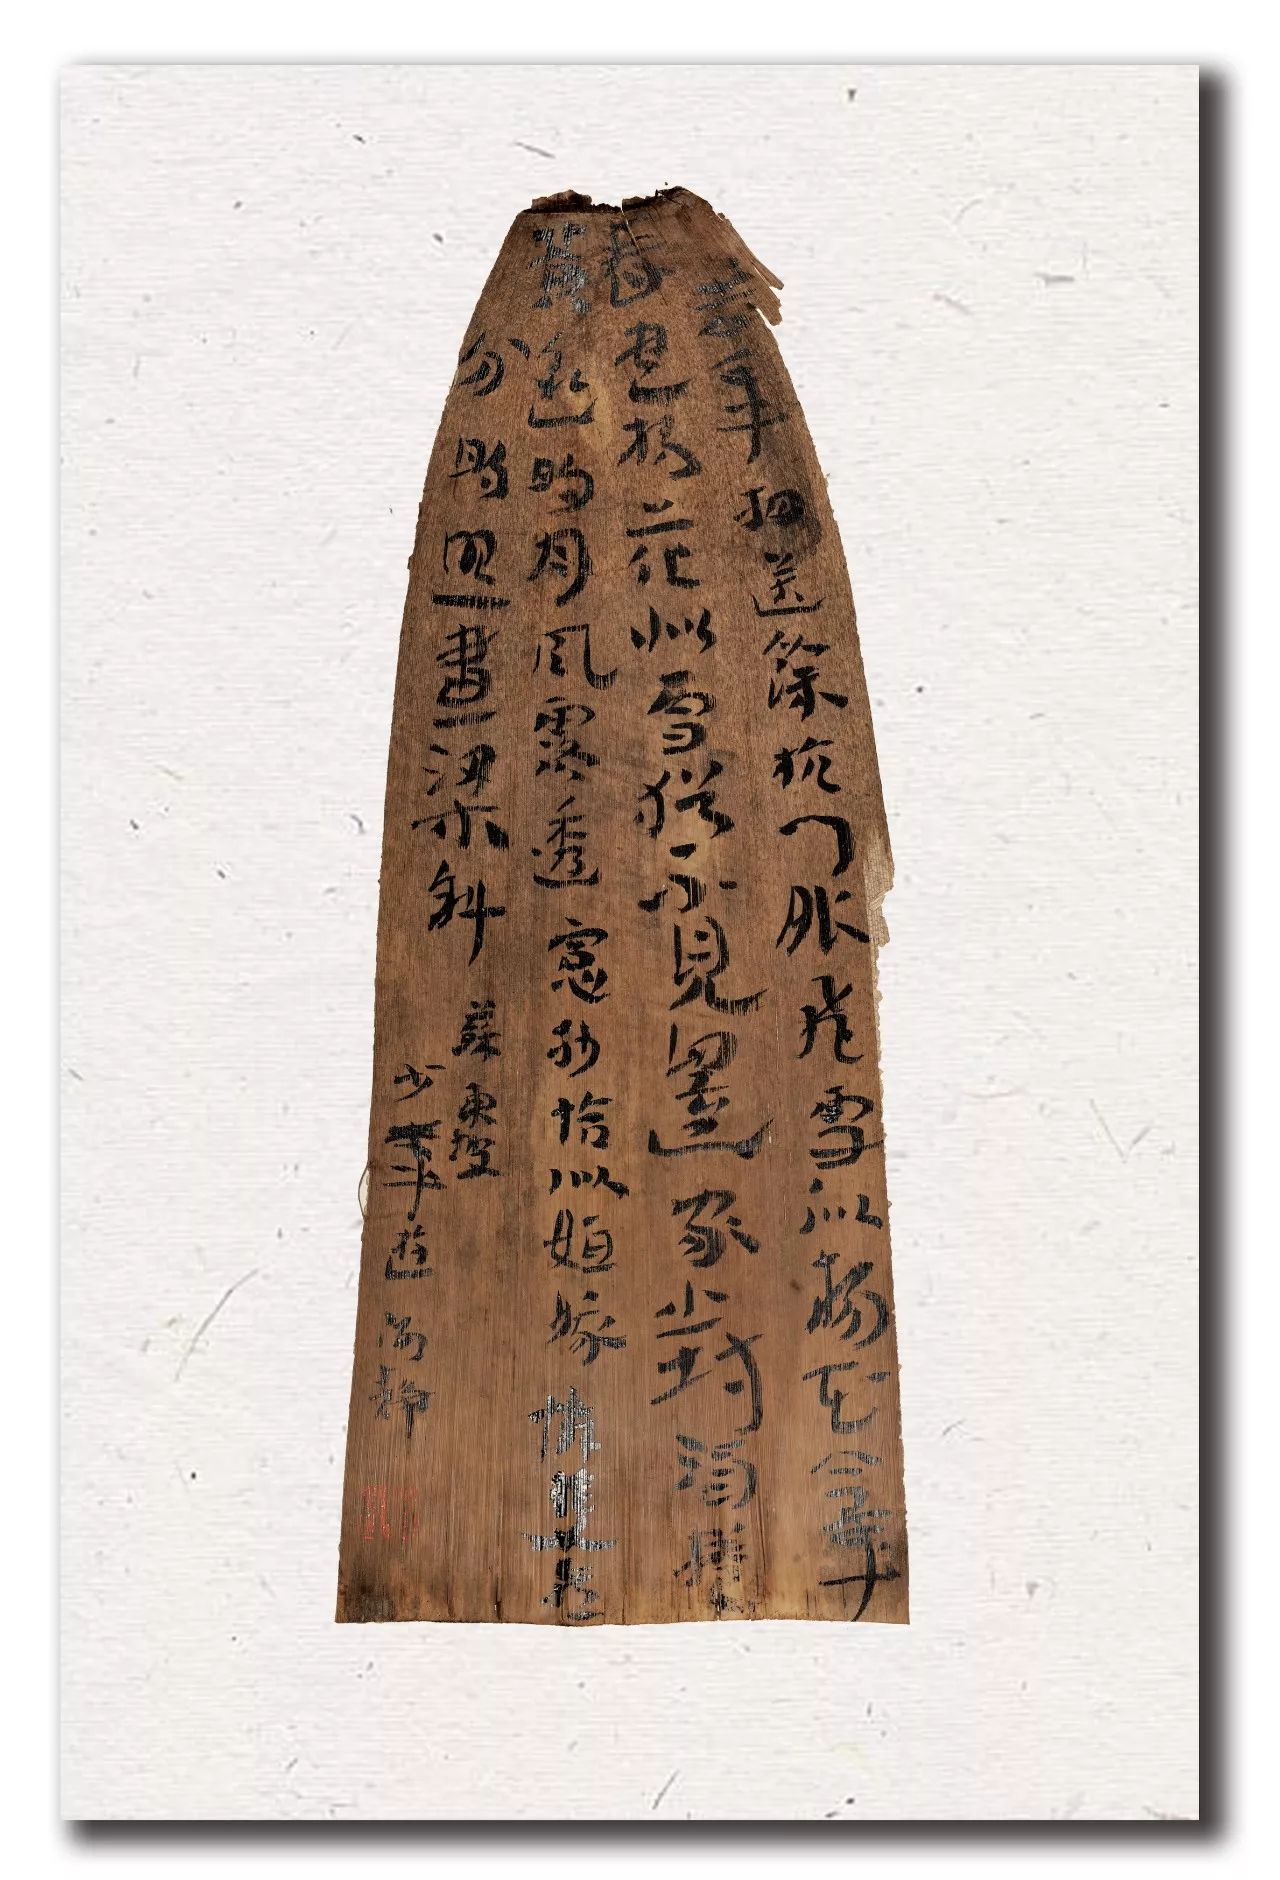 去年相送馀杭门外飛雪似楊花今年
春盡楊花似雪猶不見還家對酒捲
簾邀明月风露透窗紗恰似姮娥憐雙燕
分明照畫梁斜
蘇東坡
少年遊